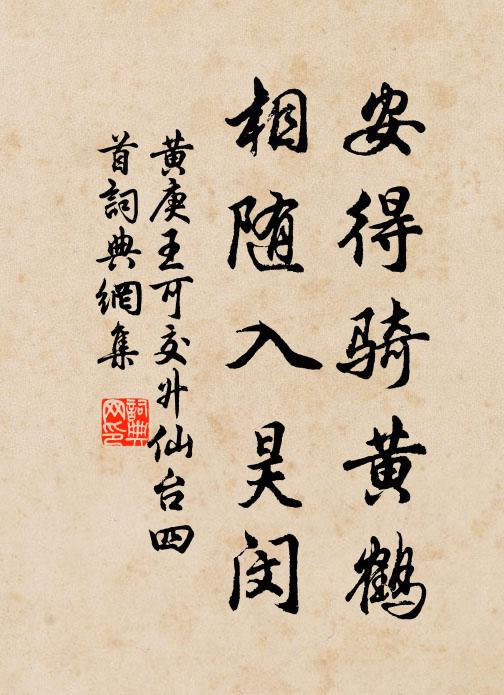 安得骑黄鹤
相随入昊闵
黄庚王可交升仙台四
首词典網集
詞典网印